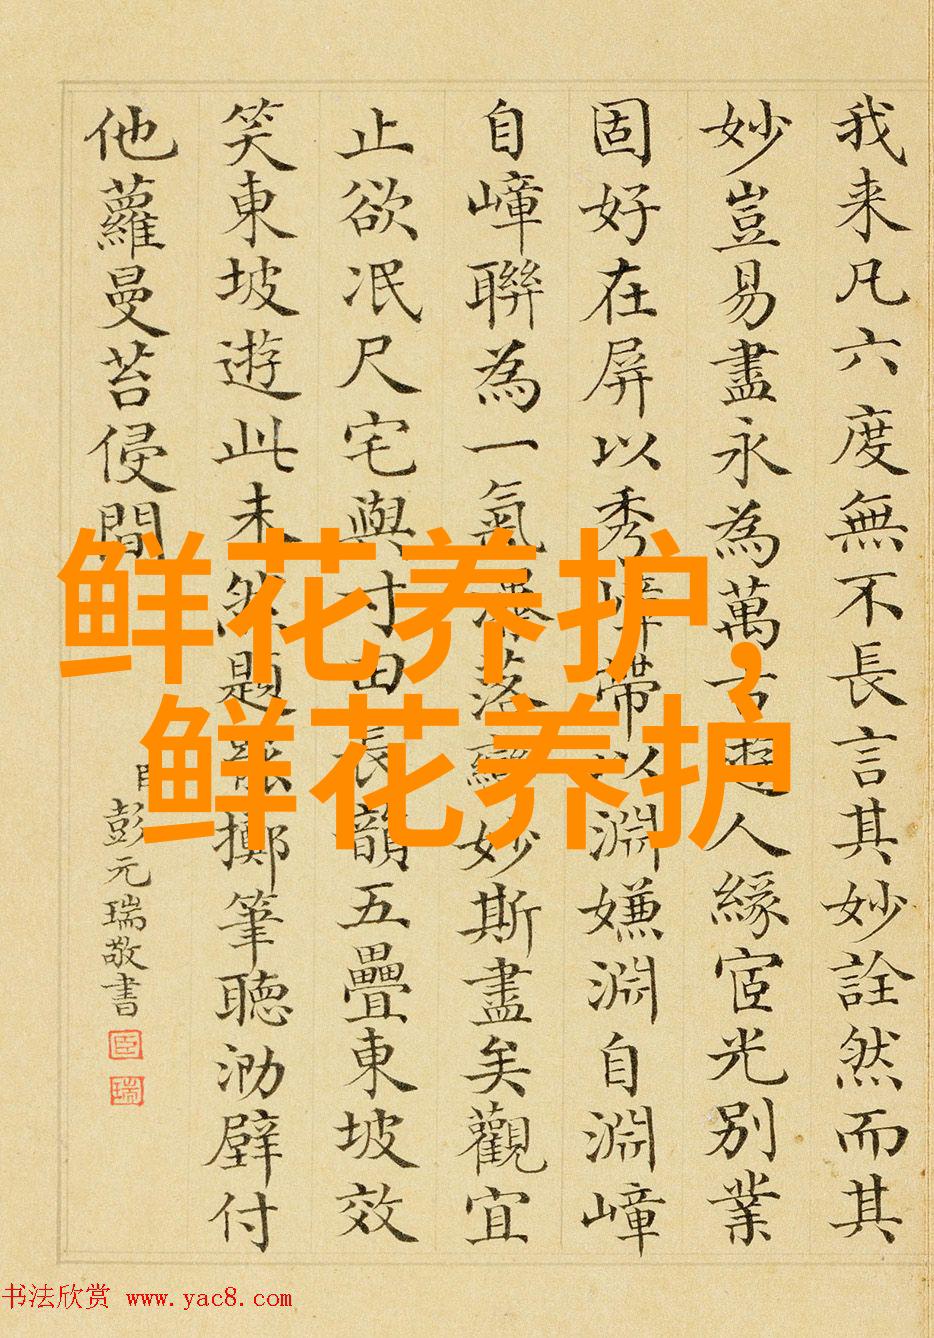 我来凡六度無不長言其妙詮然而其
妙豈易盡永為萬古遊人緣宦光別業
固好在屏以秀嶂帶以淵嫌淵自淵嶂
自嶂聯為一氣瀑落 妙斯盡矣觀宜
止欲泯尺宅與寸田長韻五疊東坡效
笑東坡遊此未然題 擲筆聽泐壁付
他蘿蔓苔侵間
臣彭元瑞敬書
臣
瑞
鲜花养护,
鲜花养护
书法欣赏 www.yac8.com